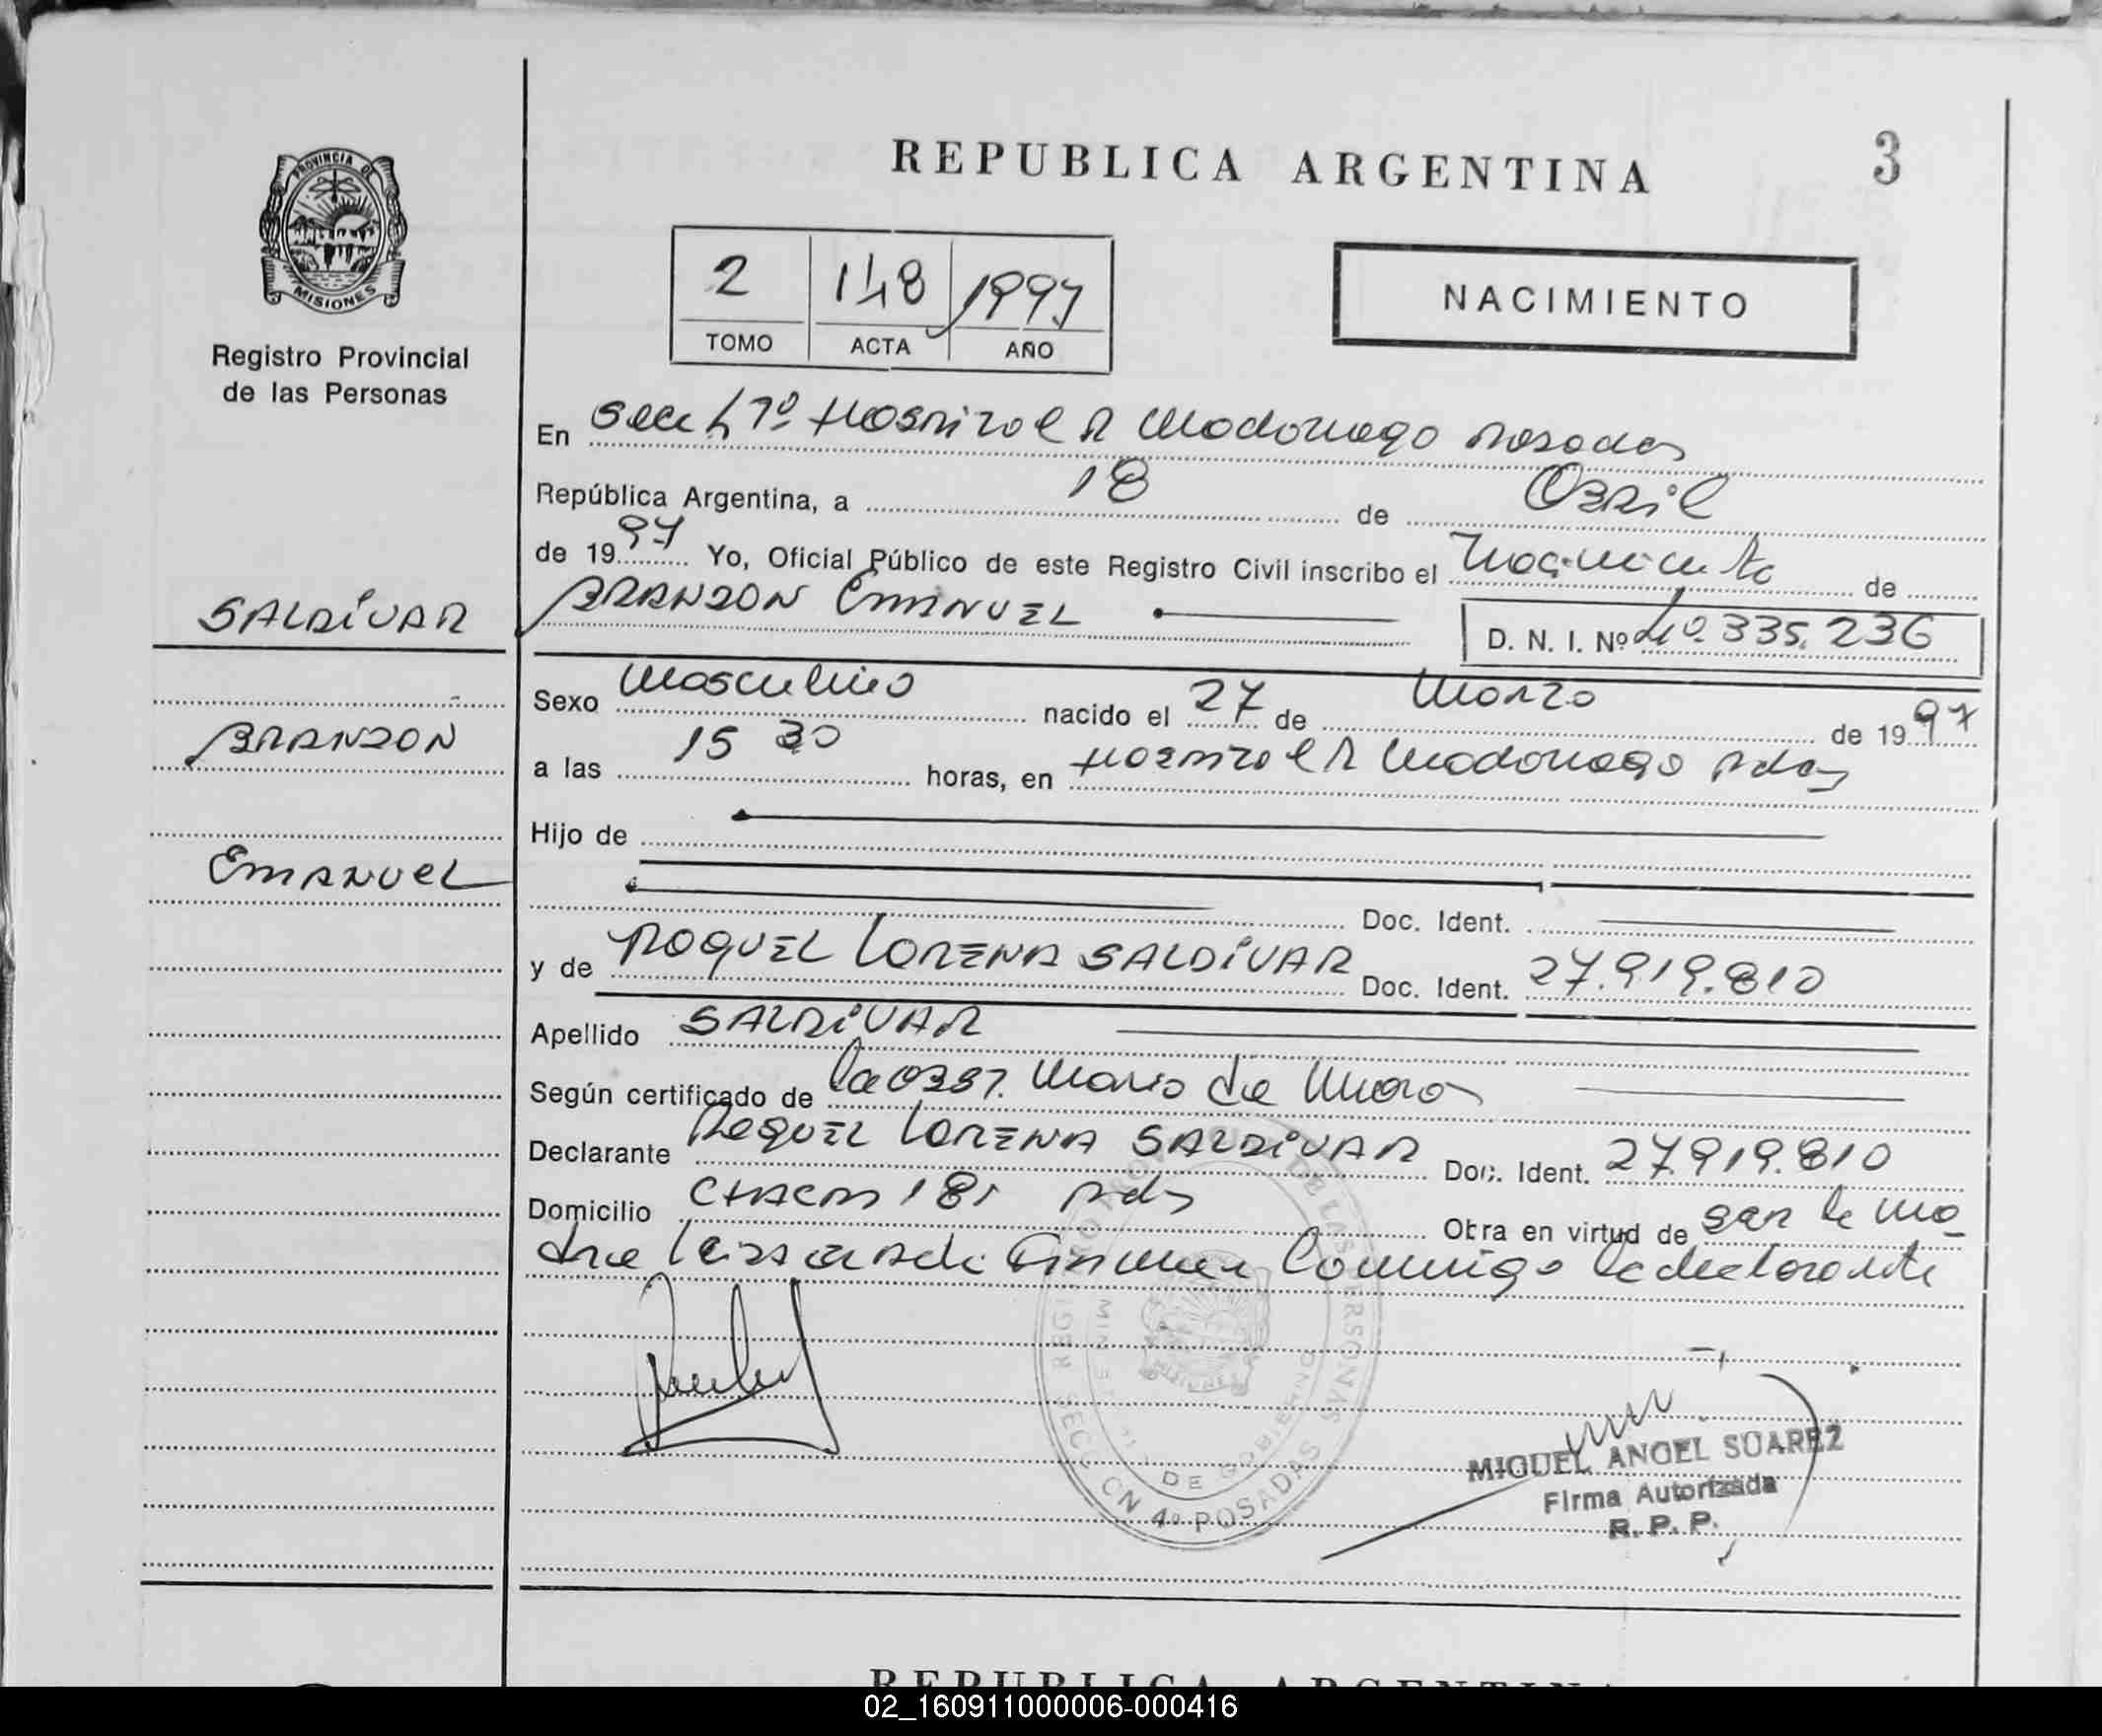 REPUBLICA ARGENTINA
3
PROVINCIA DE
MISIONES
Registro Provincial
de las Personas
2 148 1997
TOMO ACTA AÑO
NACIMIENTO
En Secc 4º Hospital R Madariaga Posadas
República Argentina, a 18 de Abril
de 1997 Yo, Oficial Público de este Registro Civil inscribo el Nacimiento de
SALDÍVAR
BRANDON EMANUEL
D. N. I. Nº 40.335.236
Sexo Masculino nacido el 27 de Marzo de 1997
BRANDON
a las 15 30 horas, en Hospital R Madariaga Pdas
Hijo de
EMANUEL
Doc. Ident.
y de RAQUEL LORENA SALDÍVAR Doc. Ident. 27.919.810
Apellido SALDÍVAR
Según certificado de la Obst. Maria de
Declarante RAQUEL LORENA SALDÍVAR Doc. Ident. 27.919.810
Domicilio CHACRA 181 Pdas Obra en virtud de ser la ma
dre Leida el Acta Firman Conmigo la declarante
REGISTRO DE LAS PERSONAS
MINISTERIO DE GOBIERNO
SECCION 4º POSADAS
MIGUEL ANGEL SUAREZ
Firma Autorizada
R. P. P.
REPUBLICA ARGENTINA
02_160911000006-000416